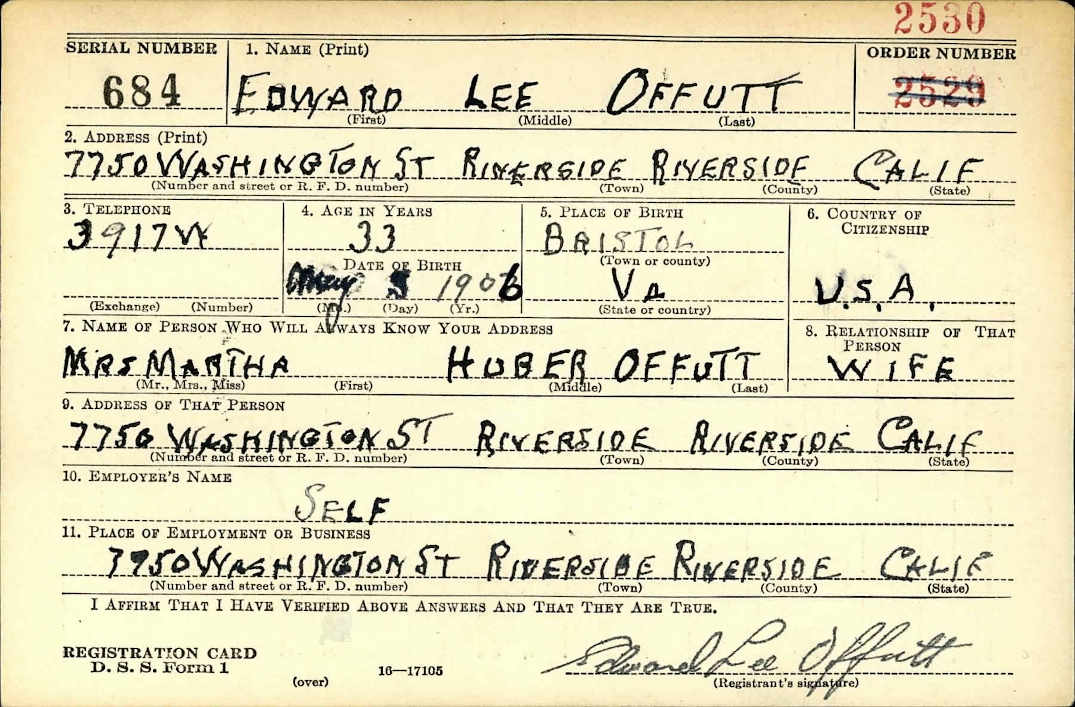 2530
SERIAL NUMBER 1. NAME (Print) ORDER NUMBER
684 EDWARD LEE OFFUTT 2529
(First) (Middle) (Last)
2. ADDRESS (Print)
7750 WASHINGTON ST RIVERSIDE RIVERSIDE CALIF
(Number and street or R. F. D. number) (Town) (County) (State)
3. TELEPHONE 4. AGE IN YEARS 5. PLACE OF BIRTH 6. COUNTRY OF CITIZENSHIP
3917W 33 BRISTOL
DATE OF BIRTH (Town or county)
May 3 1906 VA U.S.A.
(Exchange) (Number) (Mo.) (Day) (Yr.) (State or country)
7. NAME OF PERSON WHO WILL ALWAYS KNOW YOUR ADDRESS 8. RELATIONSHIP OF THAT PERSON
MRS MARTHA HUBER OFFUTT WIFE
(Mr., Mrs., Miss) (First) (Middle) (Last)
9. ADDRESS OF THAT PERSON
7750 WASHINGTON ST RIVERSIDE RIVERSIDE CALIF
(Number and street or R. F. D. number) (Town) (County) (State)
10. EMPLOYER'S NAME
SELF
11. PLACE OF EMPLOYMENT OR BUSINESS
7750 WASHINGTON ST RIVERSIDE RIVERSIDE CALIF
(Number and street or R. F. D. number) (Town) (County) (State)
I AFFIRM THAT I HAVE VERIFIED ABOVE ANSWERS AND THAT THEY ARE TRUE.
REGISTRATION CARD
D. S. S. Form 1 16—17105 Edward Lee Offutt
(over) (Registrant's signature)